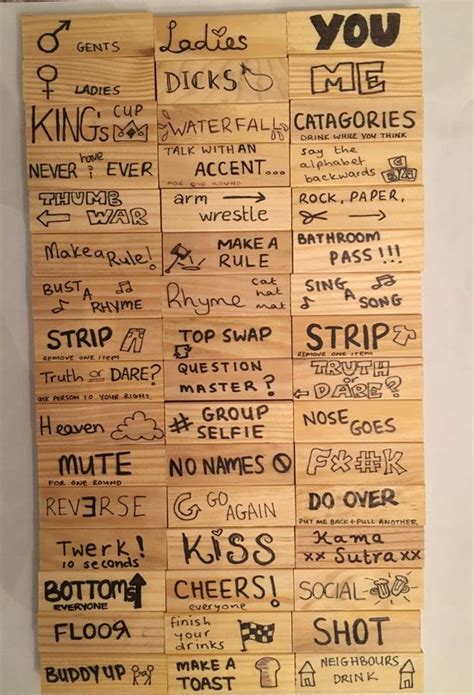 GENTS
Ladies
YOU
LADIES
DICKS
ME
KING's CUP
WATERFALL
CATAGORIES
DRINK WHILE YOU THINK
NEVER have i EVER
TALK WITH AN
ACCENT...
FOR ONE ROUND
say the
alphabet
backwards
CBA
THUMB
WAR
arm
wrestle
ROCK, PAPER,
Make a Rule!
MAKE A
RULE
BATHROOM
PASS!!!
BUST
A
RHYME
Rhyme
cat
hat
mat
SING
A
SONG
STRIP
REMOVE ONE ITEM
TOP SWAP
STRIP
REMOVE ONE ITEM
Truth or DARE?
ASK PERSON TO YOUR RIGHT.
QUESTION
MASTER?
TRUTH
or
DARE?
Heaven
# GROUP
SELFIE
NOSE
GOES
MUTE
FOR ONE ROUND
NO NAMES
F*#K
REVERSE
GO
AGAIN
DO OVER
PUT ME BACK + PULL ANOTHER
Twerk!
10 seconds
KiSS
Kama
xx Sutra xx
BOTTOMS
EVERYONE
CHEERS!
everyone
SOCIAL
FLOOR
finish
your
drinks
SHOT
BUDDY UP
MAKE A
TOAST
NEIGHBOURS
DRINK